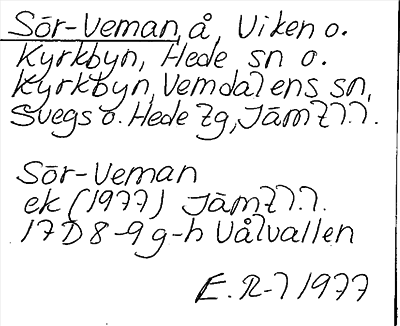 Sör-Veman, å, Viken o.
Kyrkbyn, Hede sn o.
Kyrkbyn, Vemdalens sn,
Svegs o. Hede tg, Jämtl.
Sör-Veman
ek (1977) Jämtl.
17D 8-9 g-h Vålvallen
E. R-l 1977